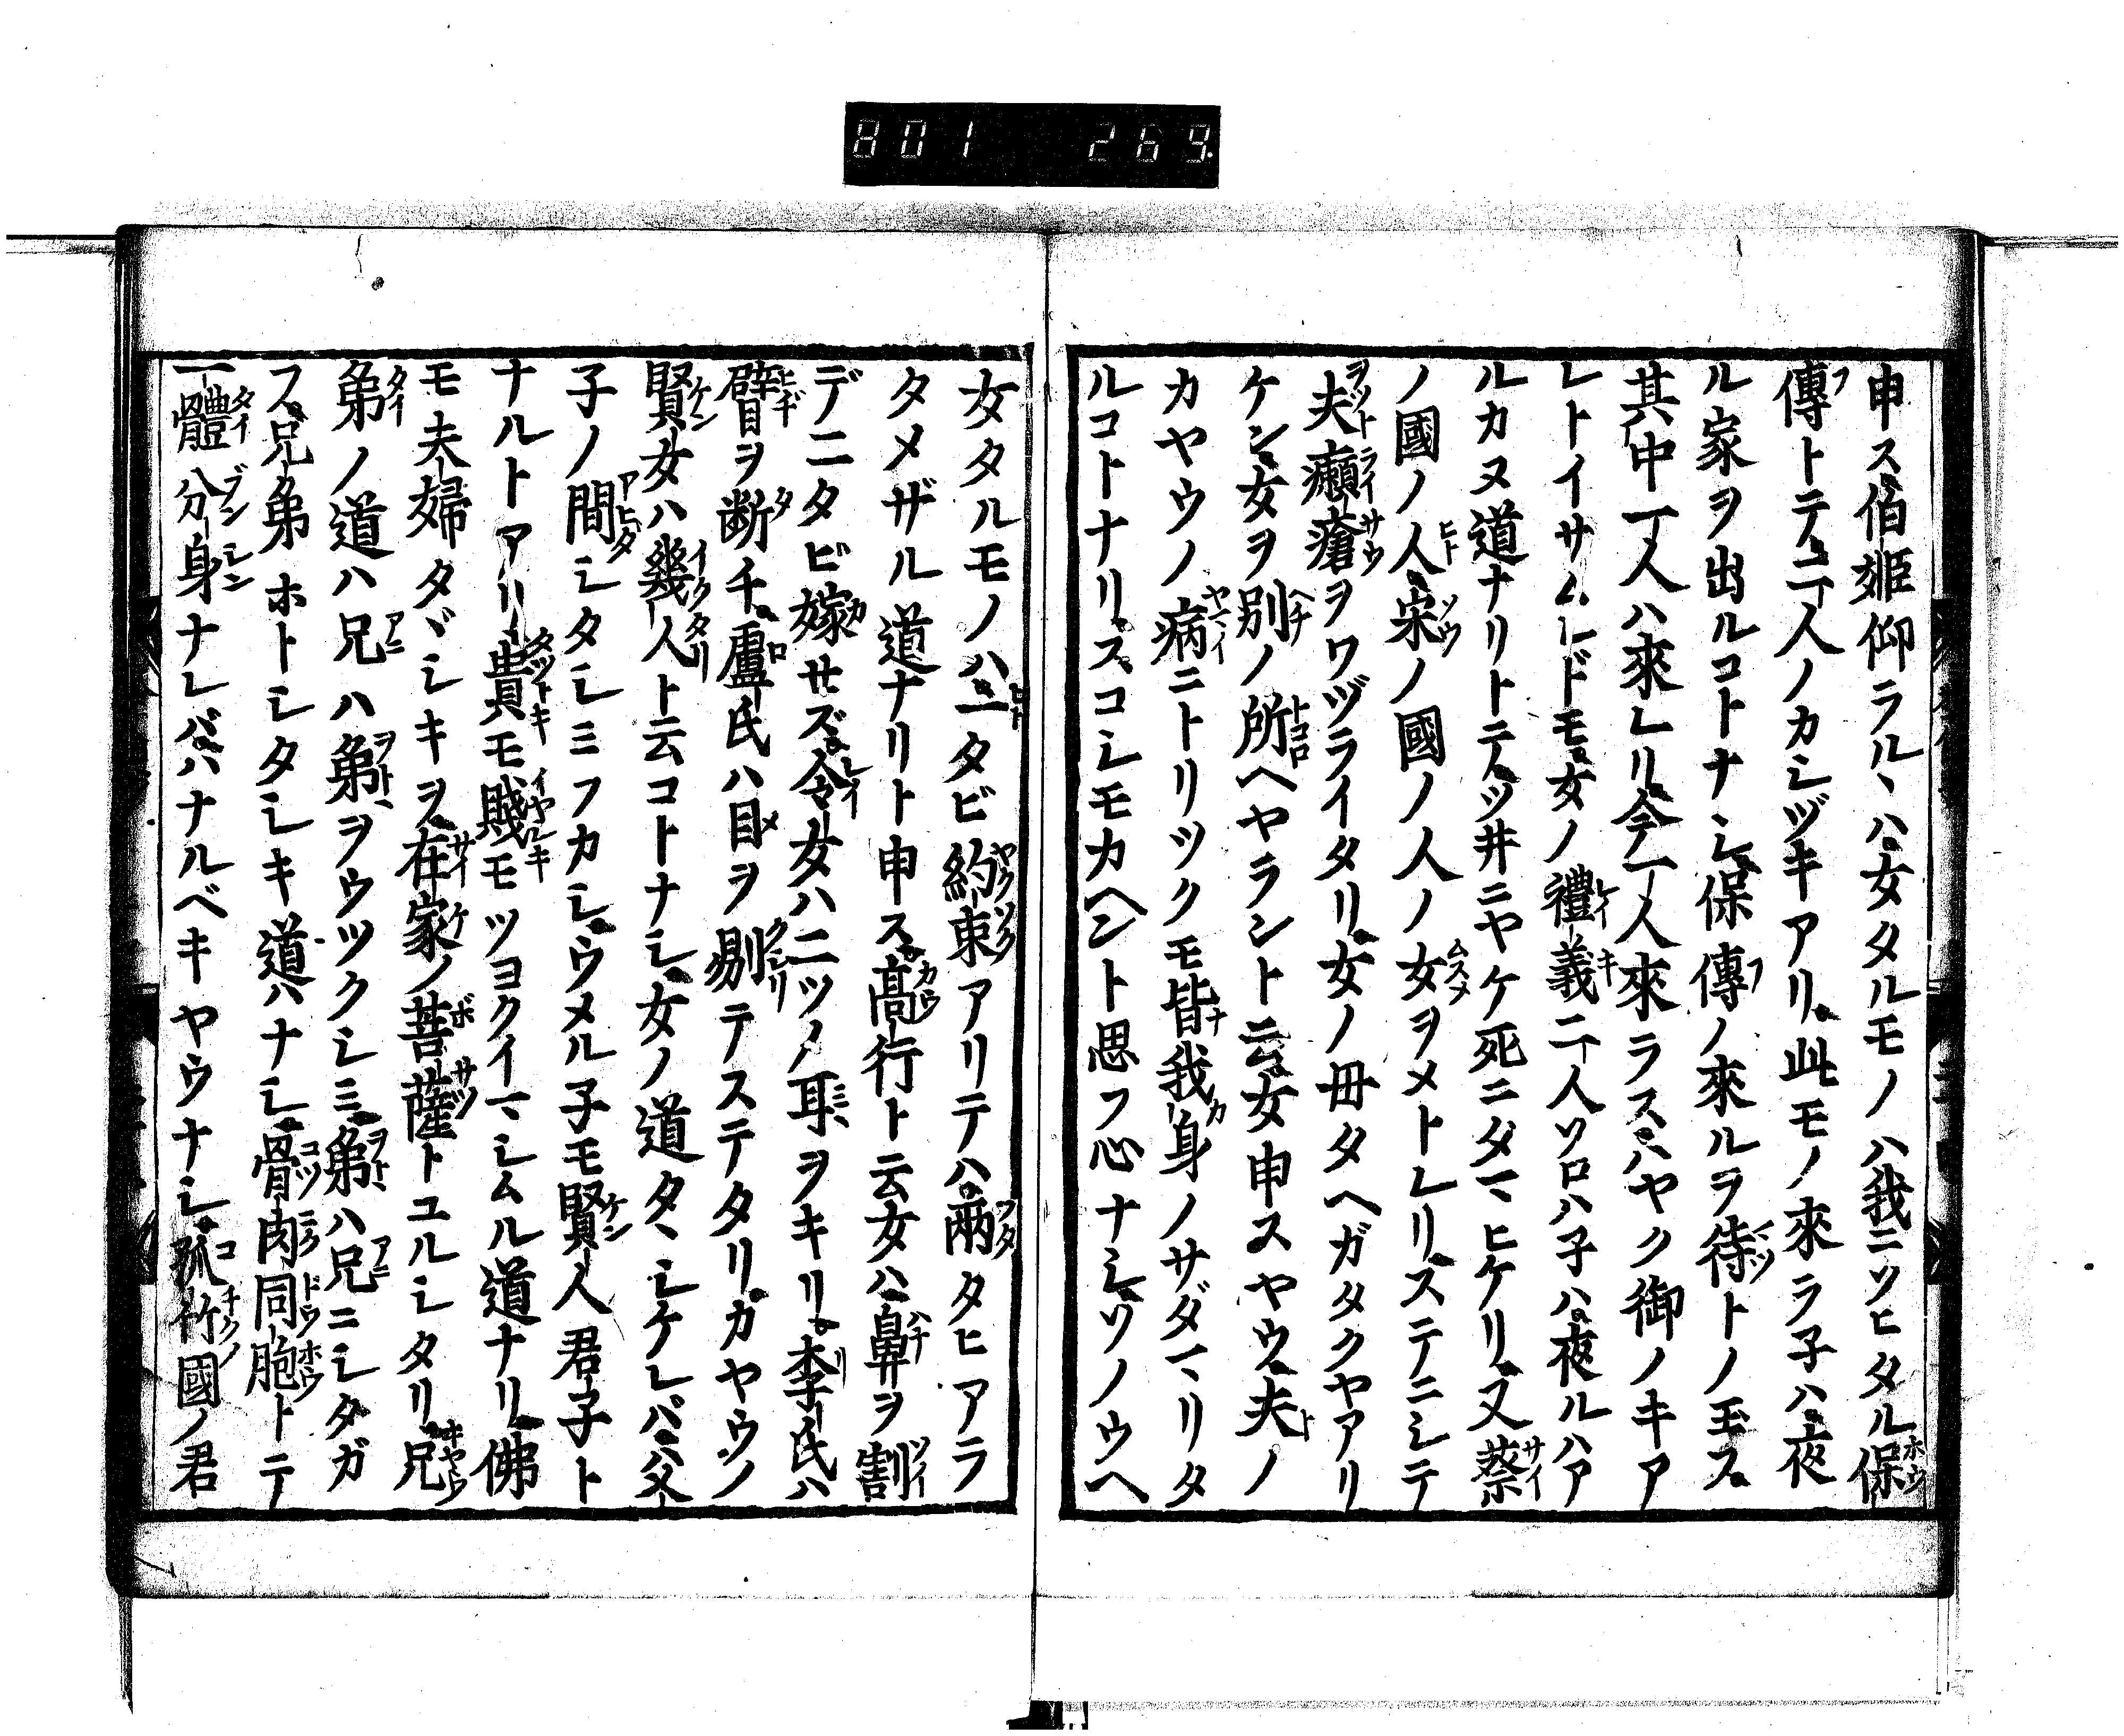 801 269
申ス伯姫仰ラルヽハ女タルモノハ我ニソヒタル保
傳トテ二人ノカシヅキアリ此モノ來ラ子ハ夜
ル家ヲ出ルコトナシ保傳ノ來ルヲ待トノ玉ス
其中一人ハ來レリ今一人來ラスハヤク御ノキア
レトイサムレドモ女ノ禮義二人ソロハ子ハ夜ルハア
ルカヌ道ナリトテツ井ニヤケ死ニタマヒケリ又蔡
ノ國ノ人宋ノ國ノ人ノ女ヲメトレリステニシテ
夫癩瘡ヲワヅライタリ女ノ毌タヘガタクヤアリ
ケン女ヲ別ノ所ヘヤラント云女申スヤウ夫ノ
カヤウノ病ニトリツクモ皆我身ノサダマリタ
ルコトナリスコシモカヘント思フ心ナシソノウヘ
女タルモノハ一タビ約束アリテハ兩タヒアラ
タメザル道ナリト申ス髙行ト云女ハ鼻ヲ割
デ二タビ嫁セズ令女ハ二ツノ耳ヲキリ李氏ハ
臂ヲ断チ盧氏ハ目ヲ剔テステタリカヤウノ
賢女ハ幾人ト云コトナシ女ノ道タヽシケレバ父
子ノ間シタシミフカシウメル子モ賢人君子ト
ナルトアリ貴モ賤モツヨクイマシムル道ナリ佛
モ夫婦タヾシキヲ在家ノ菩薩トユルシタリ兄
弟ノ道ハ兄ハ弟ヲウツクシミ弟ハ兄ニシタガ
ス兄弟ホトシタシキ道ハナシ骨肉同胞トテ
一體分身ナレバハナルベキヤウナシ孤竹國ノ君